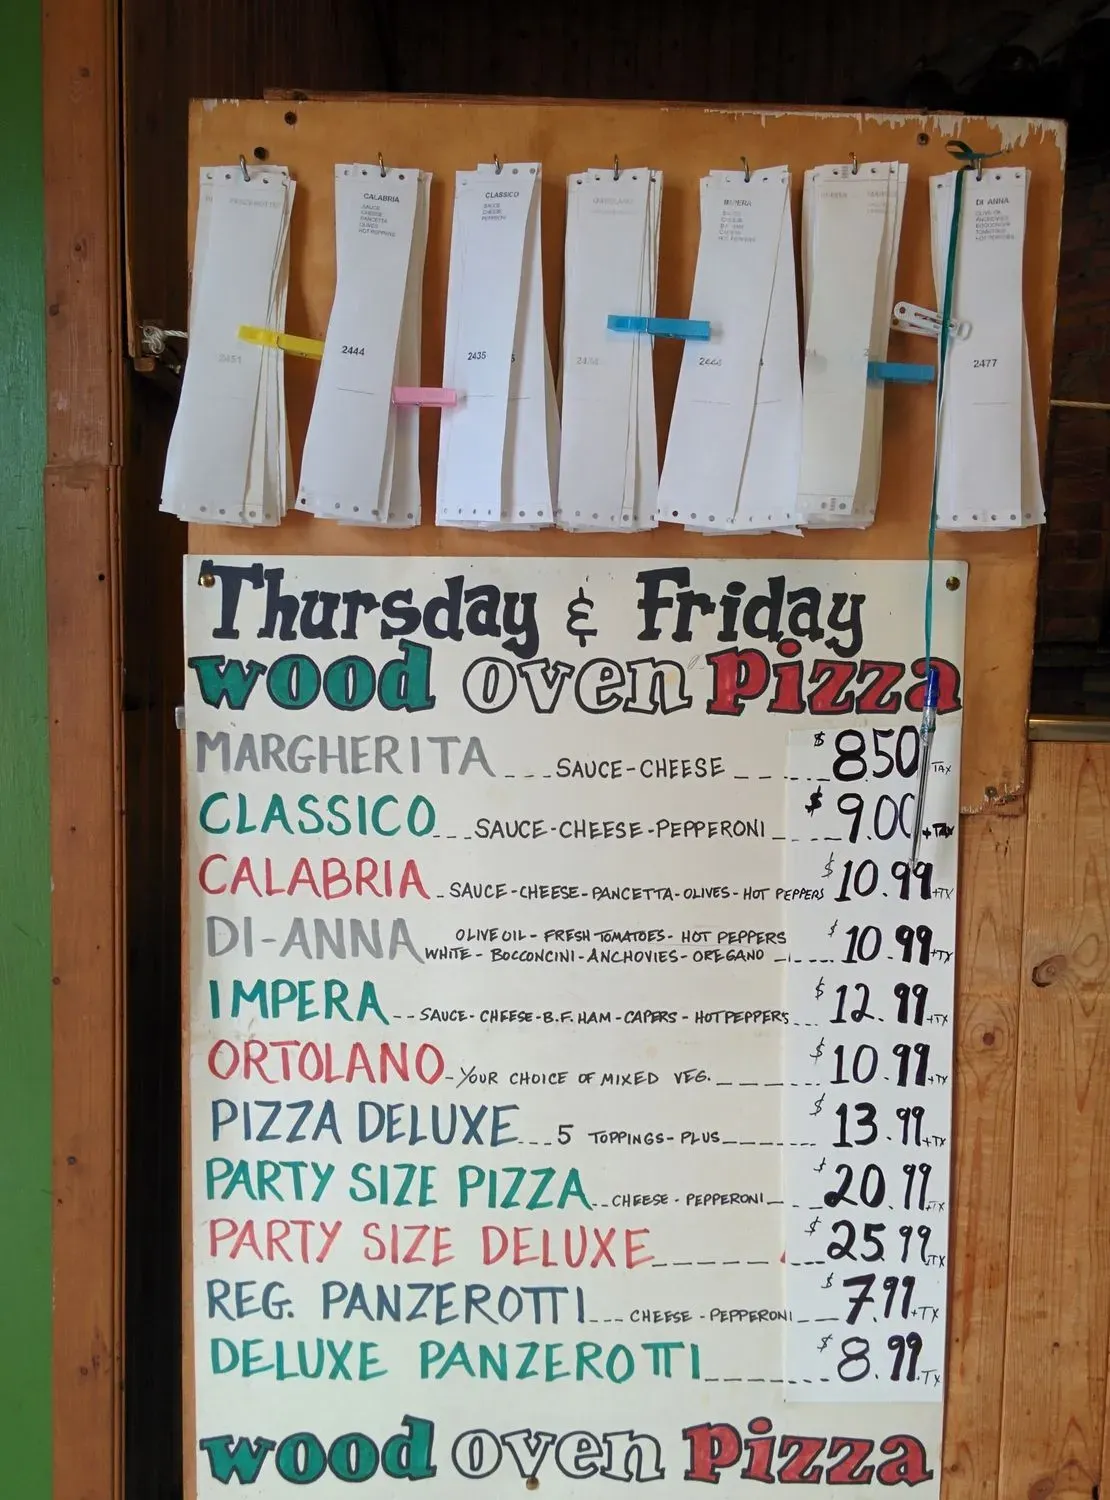 PANZEROTTI
2451
CALABRIA
SAUCE
CHEESE
PANCETTA
OLIVES
HOT PEPPERS
2444
CLASSICO
SAUCE
CHEESE
PEPPERONI
2435
IMPERA
HOT PEPPERS
DI ANNA
OLIVE OIL
ANCHOVIES
BOCCONCINI
TOMATOES
HOT PEPPERS
2477
Thursday & Friday
wood oven pizza
MARGHERITA ___ SAUCE-CHEESE __ $8.50 TAX
CLASSICO ___ SAUCE-CHEESE-PEPPERONI _ $9.00 +TAX
CALABRIA _ SAUCE-CHEESE-PANCETTA-OLIVES-HOT PEPPERS $10.99 +TX
DI-ANNA OLIVE OIL - FRESH TOMATOES - HOT PEPPERS
WHITE - BOCCONCINI - ANCHOVIES - OREGANO ---- $10.99 +TX
IMPERA -- SAUCE-CHEESE-B.F. HAM-CAPERS-HOT PEPPERS ... $12.99 +TX
ORTOLANO - YOUR CHOICE OF MIXED VEG. ---- $10.99 +TX
PIZZA DELUXE ... 5 TOPPINGS-PLUS ---- $13.99 +TX
PARTY SIZE PIZZA .. CHEESE - PEPPERONI -- $20.99 +TX
PARTY SIZE DELUXE ------ $25.99 TX
REG. PANZEROTTI --- CHEESE - PEPPERONI -- $7.99 +TX
DELUXE PANZEROTTI ------ $8.99 TX
wood oven pizza